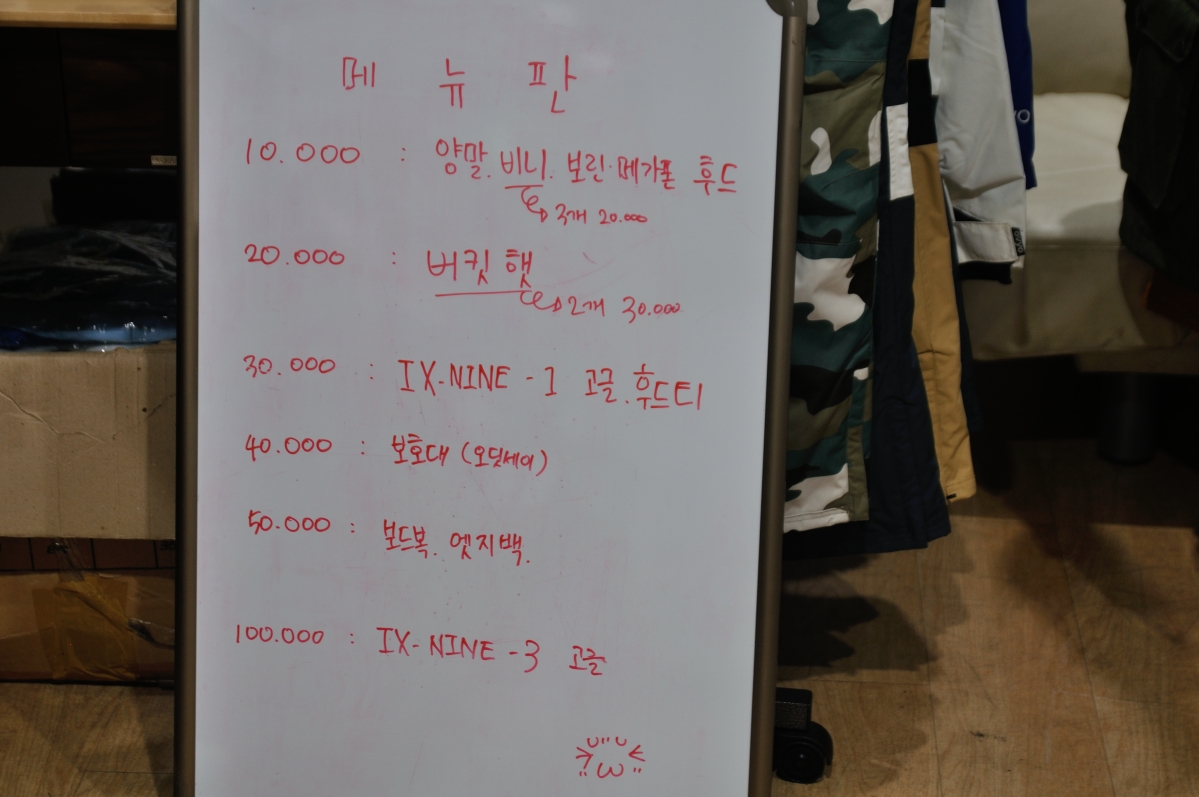 메 뉴 판
10.000 : 양말. 비니. 보린·메가폰 후드
3개 20.000
20.000 : 버킷 햇
2개 30.000
30.000 : IX-NINE-1 고글. 후드티
40.000 : 보호대 (오딧세이)
50.000 : 보드복. 엣지백.
100.000 : IX-NINE-3 고글